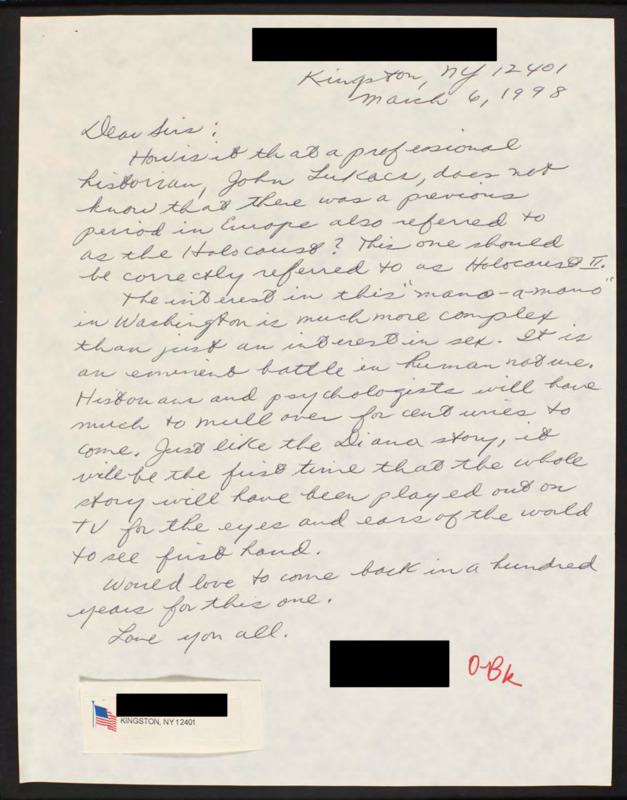 Kingston, NY 12401
March 6, 1998
Dear Sirs:
How is it that a professional
historian, John Lukacs, does not
know that there was a previous
period in Europe also referred to
as the Holocaust? This one should
be correctly referred to as Holocaust II.
The interest in this "mano-a-mano"
in Washington is much more complex
than just an interest in sex. It is
an eminent battle in human nature.
Historians and psychologists will have
much to mull over for centuries to
come. Just like the Diana story, it
will be the first time that the whole
story will have been played out on
TV for the eyes and ears of the world
to see first hand.
Would love to come back in a hundred
years for this one.
Love you all.
O-Bk
KINGSTON, NY 12401